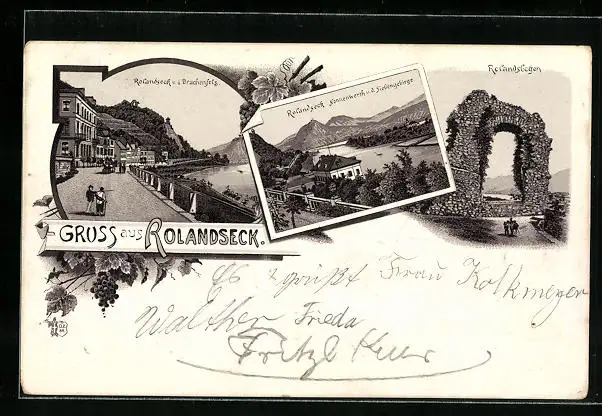 Rolandseck u. d. Drachenfels.
Rolandseck Nonnenwerth u. d. Siebengebirge
Rolandsbogen
GRUSS aus ROLANDSECK.
Es grüßt Frau Kolkmeyer
Walther Frieda
Fritz